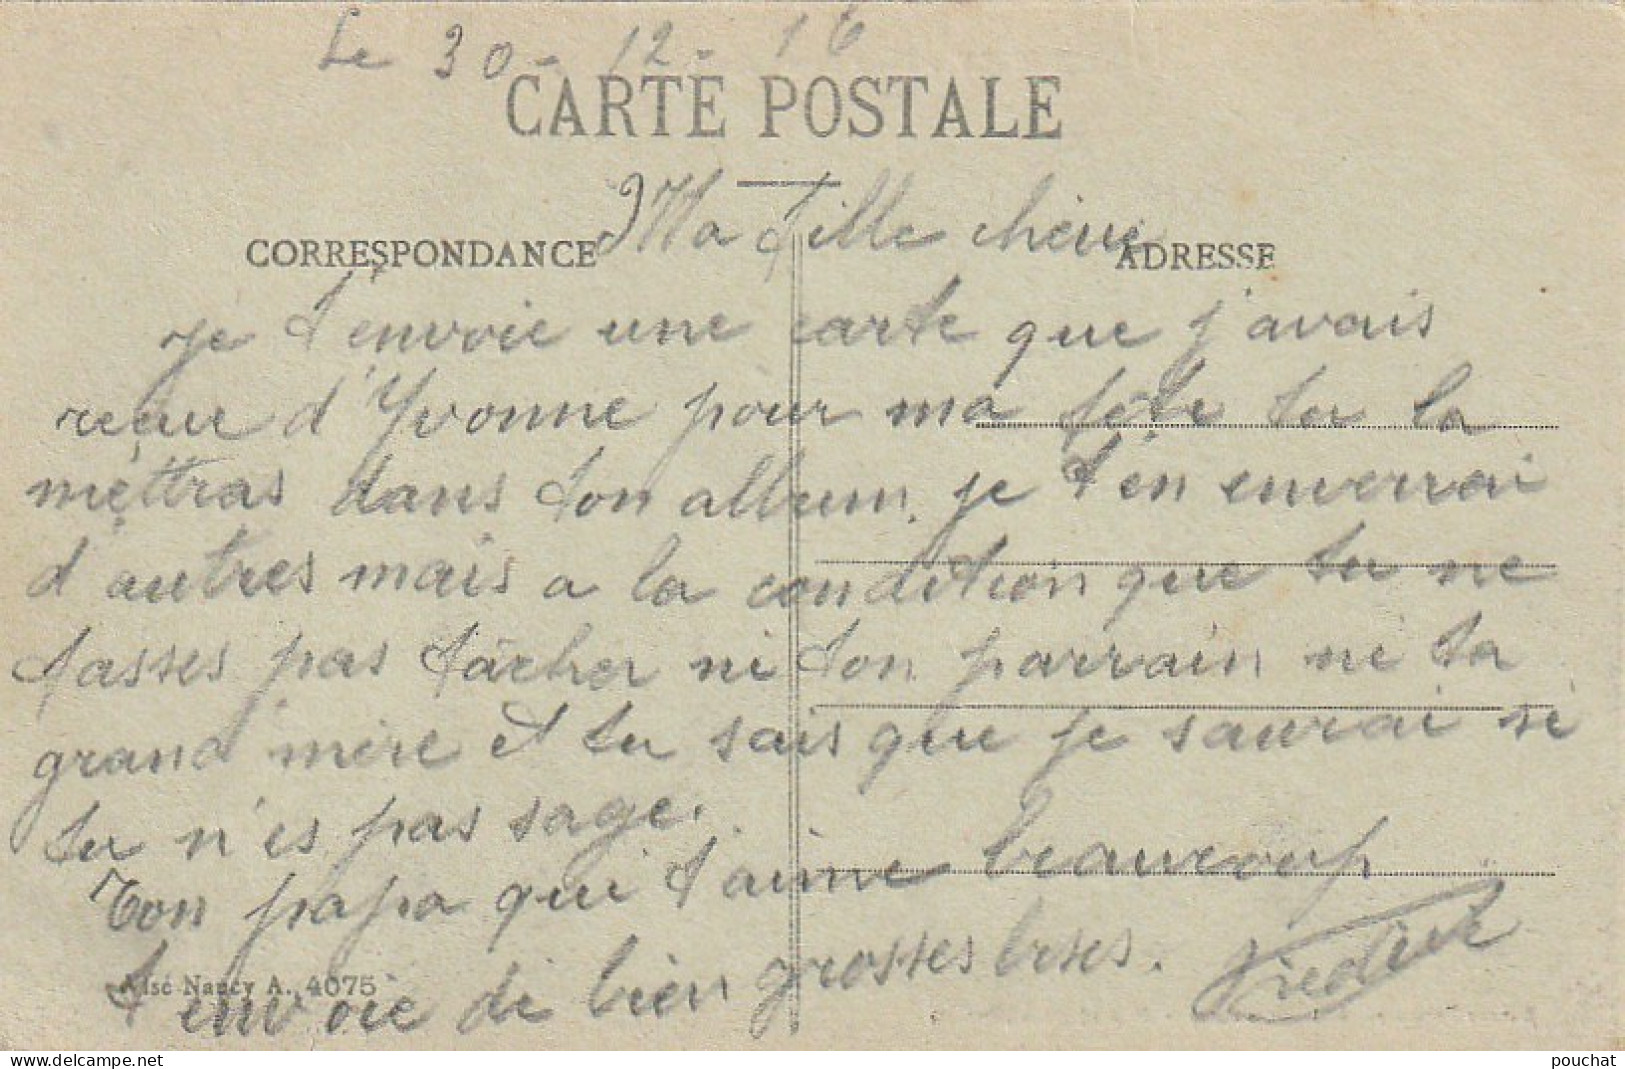 Le 30-12-16
CARTE POSTALE
Ma fille chère
CORRESPONDANCE
ADRESSE
je t'envoie une carte que j'avais
reçue d'Yvonne pour ma fête tu la
mettras dans ton album. je t'en enverrai
d'autres mais a la condition que tu ne
fasses pas fâcher ni ton parrain ni ta
grand mère et tu sais que je saurai si
tu n'es pas sage.
Ton papa qui t'aime beaucoup
t'envoie de bien grosses bises.
Nancy A. 4075
delcampe.net
pouchat